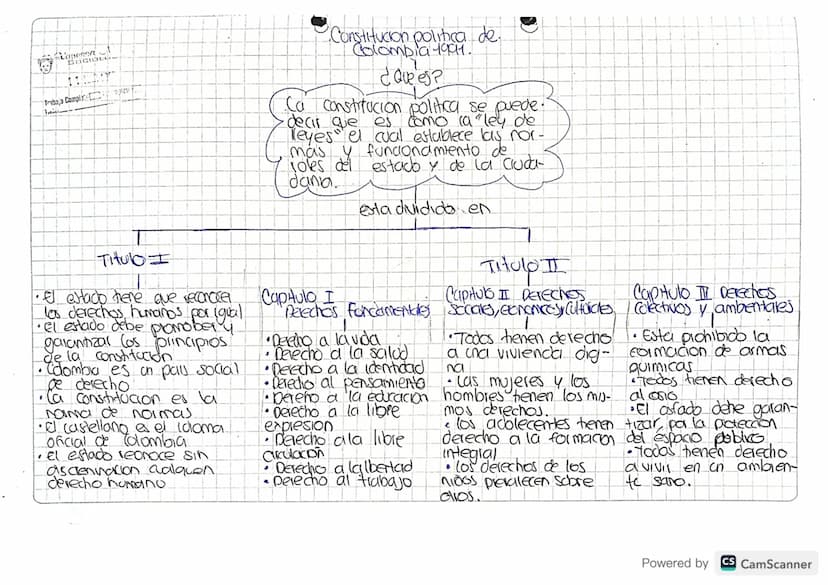 Constitucion politica de
Colombia 1991.
¿Que es?
La constitucion politica se puede
decir que es como la "ley de
leyes" el cual establece las nor-
mas y funcionamiento de
roles del estado y de la ciuda-
dania.
esta dividido en
Titulo I
• El estado tiene que reconocer
los derechos humanos por igual
• el estado debe promober y
garantizar los principios
de la constitucion
• Colombia es un pais social
de derecho
• La constitucion es la
norma de normas
• El castellano es el idioma
oficial de Colombia
• el estado reconoce sin
derecho humano
Titulo II
Capitulo I
Derechos fundamentales
• Derecho a la vida
• Derecho a la salud
• Derecho a la identidad
• Derecho al pensamiento
• Derecho a la educacion
• Derecho a la libre
expresion
• Derecho a la libre
circulacion
• Derecho a la libertad
• Derecho al trabajo
Capitulo II Derechos
sociales, economicos y culturales
• Todos tienen derecho
a una vivienda dig-
na
• Las mujeres y los
hombres tienen los mis-
mos derechos.
• los adolecentes tienen
derecho a la formacion
integral
• los derechos de los
niños prevalecen sobre
otros.
Capitulo III Derechos
colectivos y ambientales
• Esta prohibido la
formacion de armas
quimicas
• Todos tienen derecho
al ocio
• El estado debe garan-
tizar por la proteccion
del espacio publico
• Todos tienen derecho
a vivir en un ambien-
te sano.
Powered by CS CamScanner